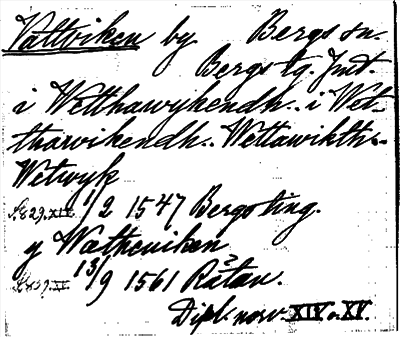 Vattviken by. Bergs sn.
Bergs tg. Jmt.
i Wetthawijkendh. i Wet-
tharvikendh. Wettawikth..
Wetwyk
s. 829. XIV 1/2 1547 Bergsting.
y Watheuiken
13/9 1561 Rätan.
Dipl. norv. XIV o. XV.